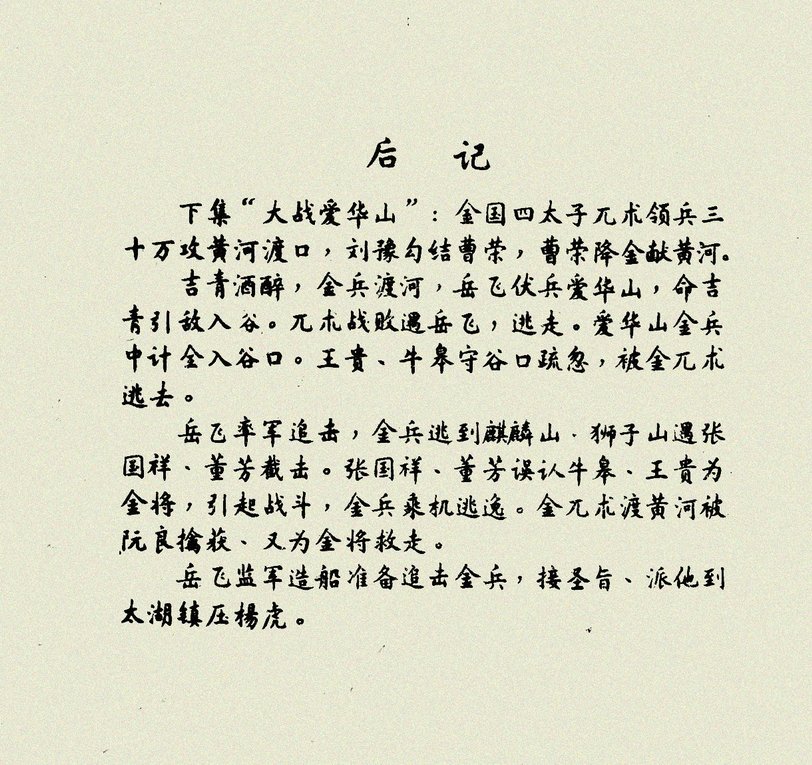 后 记
下集“大战爱华山”：金国四太子兀术领兵三
十万攻黄河渡口，刘豫勾结曹荣，曹荣降金献黄河。
吉青酒醉，金兵渡河，岳飞伏兵爱华山，命吉
青引敌入谷。兀术战败遇岳飞，逃走。爱华山金兵
中计全入谷口。王貴、牛皋守谷口疏忽，被金兀术
逃去。
岳飞率军追击，金兵逃到麒麟山．狮子山遇张
国祥、董芳截击。张国祥、董芳误认牛皋、王貴为
金将，引起战斗，金兵乘机逃逸。金兀术渡黄河被
阮良擒获、又为金将救走。
岳飞监军造船准备追击金兵，接圣旨、派他到
太湖镇压楊虎。